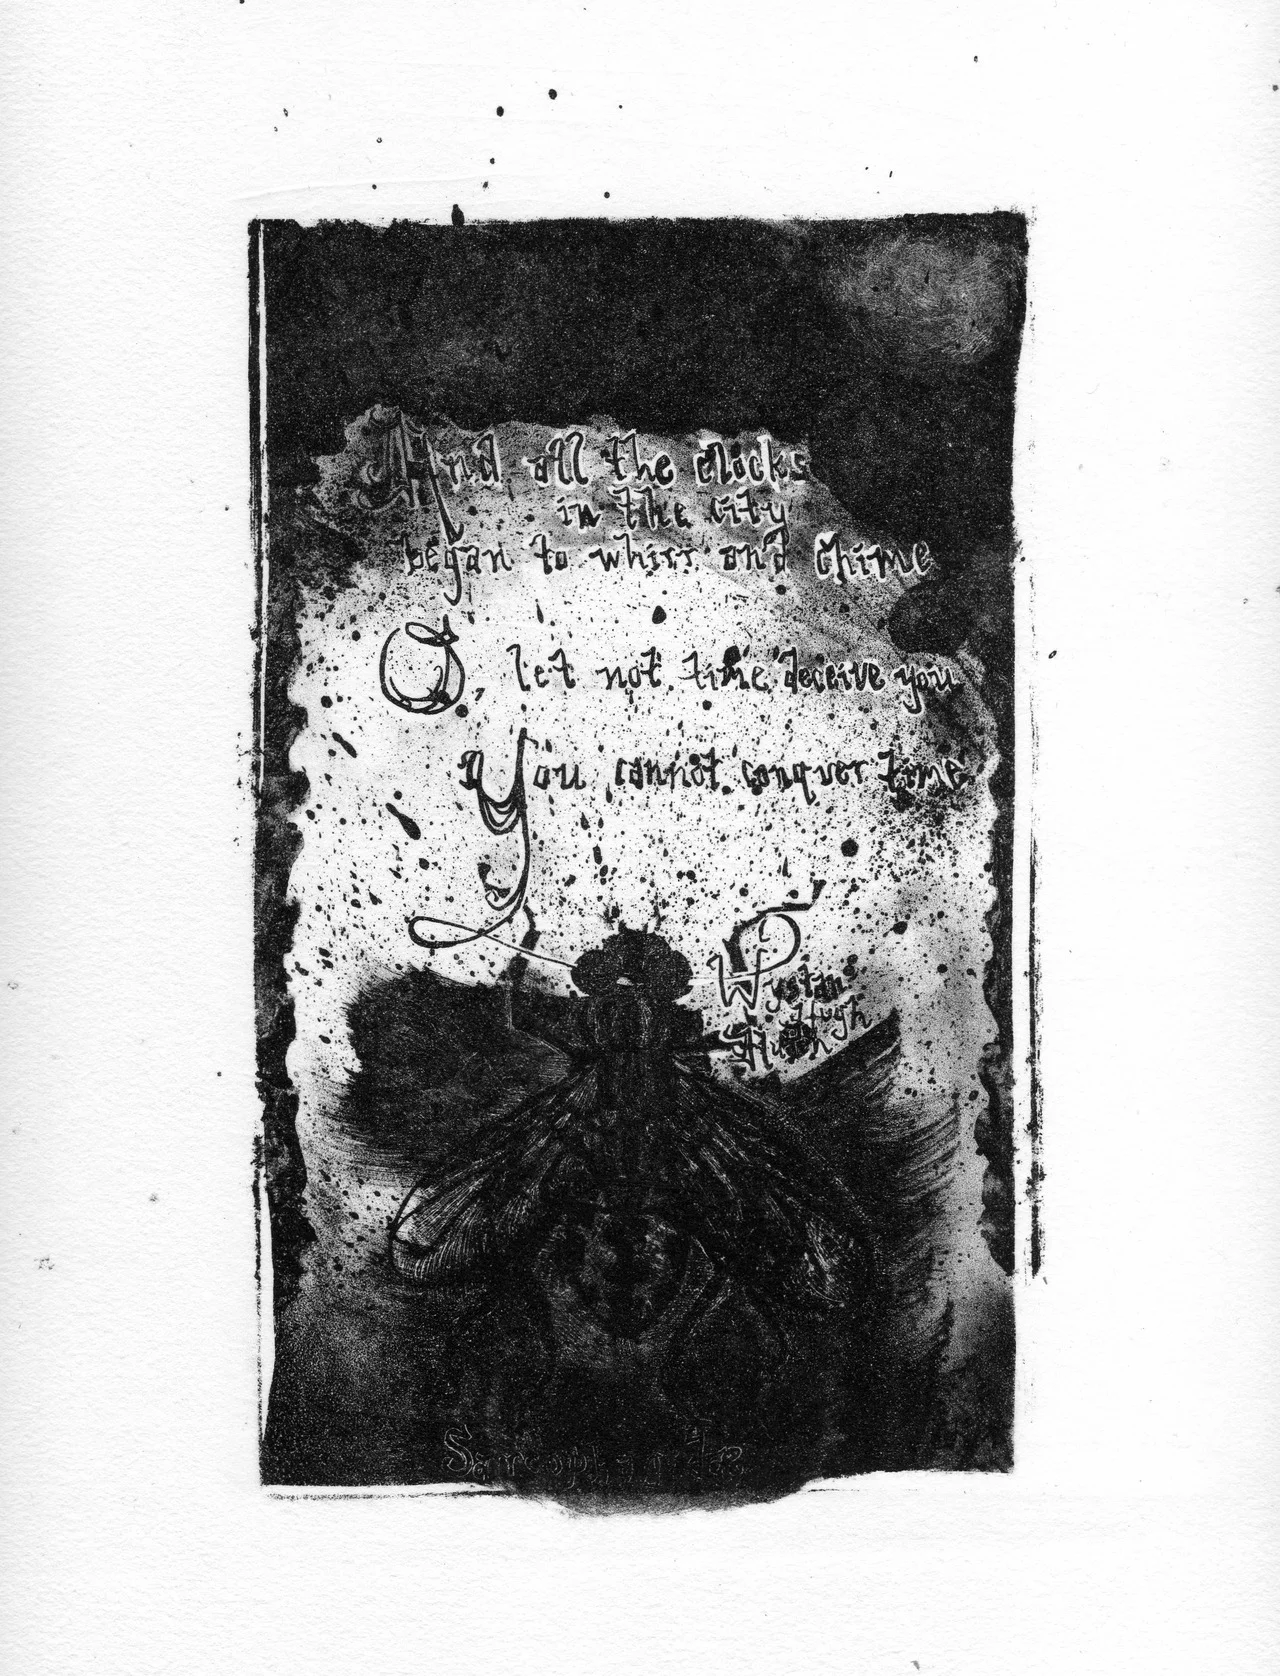 And all the clocks
in the city
began to whirr and chime
O, let not time deceive you
You cannot conquer time
Wystan
Hugh
Auden
Sarcophagidae